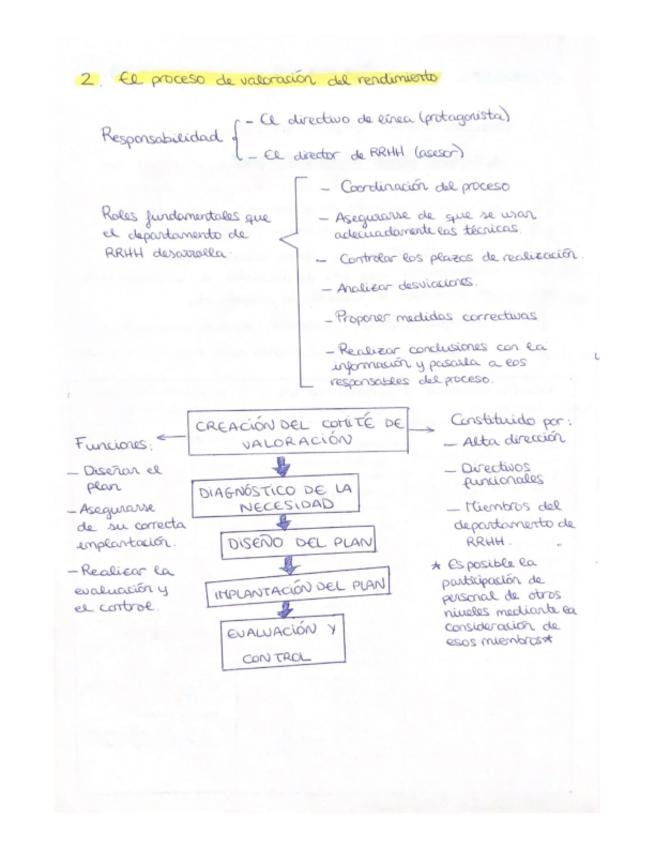 2. El proceso de valoración del rendimiento
Responsabilidad
- El directivo de línea (protagonista)
- El director de RRHH (asesor)
Roles fundamentales que
el departamento de
RRHH desarrolla.
- Coordinación del proceso
- Asegurarse de que se usan
adecuadamente las técnicas.
- Controlar los plazos de realización.
- Analizar desviaciones.
- Proponer medidas correctivas
- Realizar conclusiones con la
información y pasarla a los
responsables del proceso.
CREACIÓN DEL COMITÉ DE
VALORACIÓN
Funciones:
- Diseñar el
plan
- Asegurarse
de su correcta
implantación.
- Realizar la
evaluación y
el control.
Constituido por:
- Alta dirección
- Directivos
funcionales
- Miembros del
departamento de
RRHH.
* Es posible la
participación de
personal de otros
niveles mediante la
consideración de
esos miembros*
DIAGNÓSTICO DE LA
NECESIDAD
DISEÑO DEL PLAN
IMPLANTACIÓN DEL PLAN
EVALUACIÓN Y
CONTROL